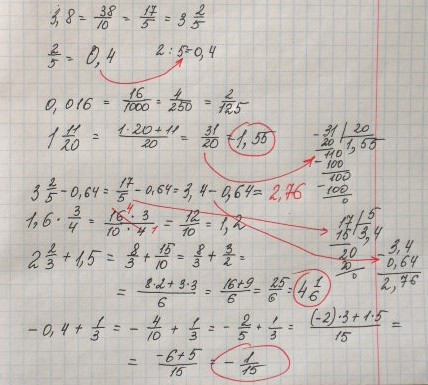 3,8 = 38/10 = 17/5 = 3 2/5
2/5 = 0,4 2 : 5 = 0,4
0,016 = 16/1000 = 4/250 = 2/125
1 11/20 = (1·20+11)/20 = 31/20 = 1,55
- 31 | 20
20 | 1,55
110
- 100
100
- 100
0
3 2/5 - 0,64 = 17/5 - 0,64 = 3,4 - 0,64 = 2,76
1,6 · 3/4 = (16 4 · 3)/(10 · 4 1) = 12/10 = 1,2
17 | 5
15 | 3,4
20
20
0
2 2/3 + 1,5 = 8/3 + 15/10 = 8/3 + 3/2 =
- 3,4
0,64
2,76
= (8·2+3·3)/6 = (16+9)/6 = 25/6 = 4 1/6
- 0,4 + 1/3 = - 4/10 + 1/3 = - 2/5 + 1/3 = ((-2)·3+1·5)/15 =
= (-6+5)/15 = - 1/15